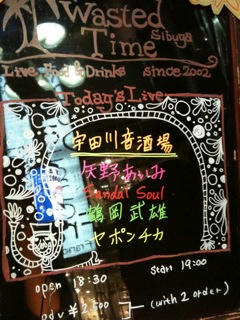 Wasted
Sibuya
Time
Live, Food & Drinks since 2002
Today's Live
宇田川音酒場
矢野あいみ
Sandal Soul
鶴岡武雄
ヤポンチカ
open 18:30 start 19:00
adv ¥2,500 (with 2 order)